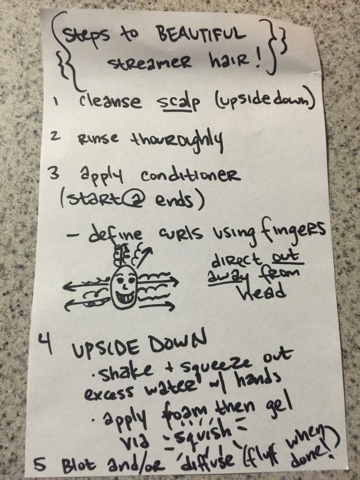 Steps to BEAUTIFUL
streamer hair!
1 cleanse scalp (upside down)
2 rinse thouroughly
3 apply conditioner
(start @ ends)
- define curls using fingers
direct out
away from
head
4 UPSIDE DOWN
• shake + squeeze out
excess water w/ hands
• apply foam then gel
via - squish -
5 Blot and/or diffuse (fluff when
done!)